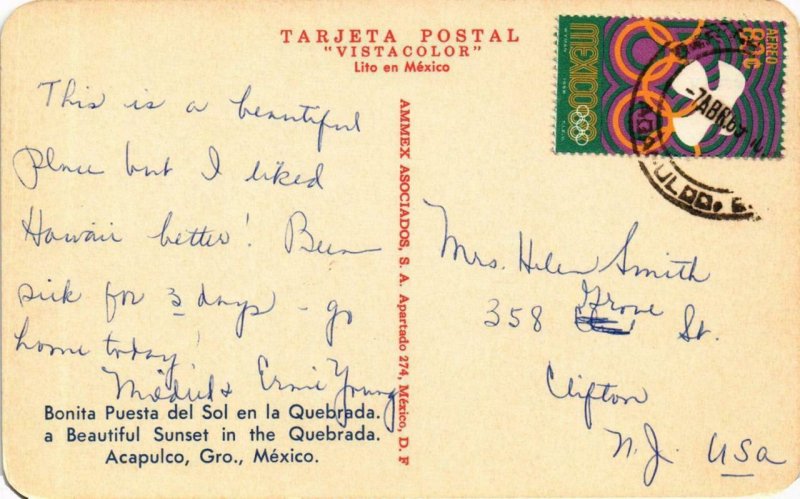 TARJETA POSTAL
"VISTACOLOR"
Lito en México
AEREO
80c
MEXICO68
7 ABR 69
ACAPULCO, G
This is a beautiful
place but I liked
Hawaii better! Been
sick for 3 days - go
home today!
Mildred & Ernie Young
Bonita Puesta del Sol en la Quebrada.
a Beautiful Sunset in the Quebrada.
Acapulco, Gro., México.
AMMEX ASOCIADOS, S. A. Apartado 274, México, D. F
Mrs. Helen Smith
358 Grove St.
Clifton
N.J. USA